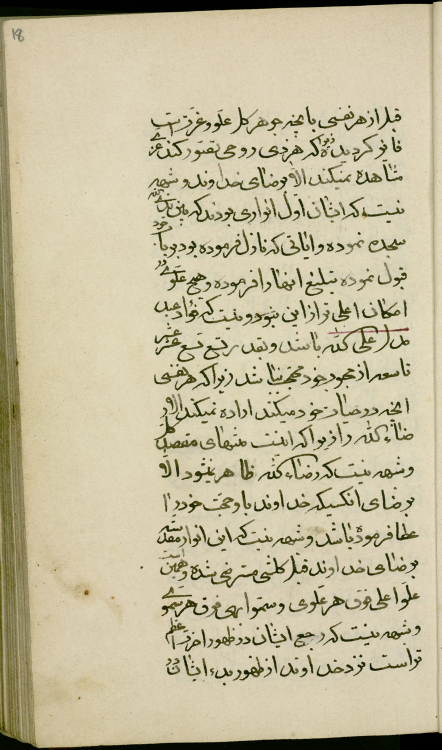 18
قبل از هر نفسی بانچه جوهر کل علو و عزت است
فائز گردیدند زیرا که هر ذی روحی تصور کند عز
مشاهده نمیکند الا برضای خداوند و شبهه
نیست که ایشان اول انواری بودند که بین یدی الله
سجده نموده و ایاتی که نازل فرموده بود بر باب خود
قبول نموده تبلیغ انها را فرموده و هیچ علوی در
امکان اعلی تر از این نبوده و نیست که فؤاد عبد
مدل علی الله باشد و بقدر تسع تسع عشر عشر
تاسعه از محبوب خود محتجب نباشد زیرا که هر نفسی
انچه در رضای خود میکند اراده نمیکند الا
رضاء الله را زیرا که اینست منتهای مقصد کل
و شبهه نیست که رضاء الله ظاهر نمیشود الا
برضای انکسیکه خداوند باو حجت خود را
عطا فرموده باشد و شبهه نیست که این انوار مقدسه
برضای خداوند قبل کلشئ مسترضی شده و همین است
علو اعلی فوق هر علوی و سمو ابهی فوق هر سموی
و شبهه نیست که رجع ایشان در ظهور اخرت اعظم
تر است نزد خداوند از ظهور بدء ایشان در